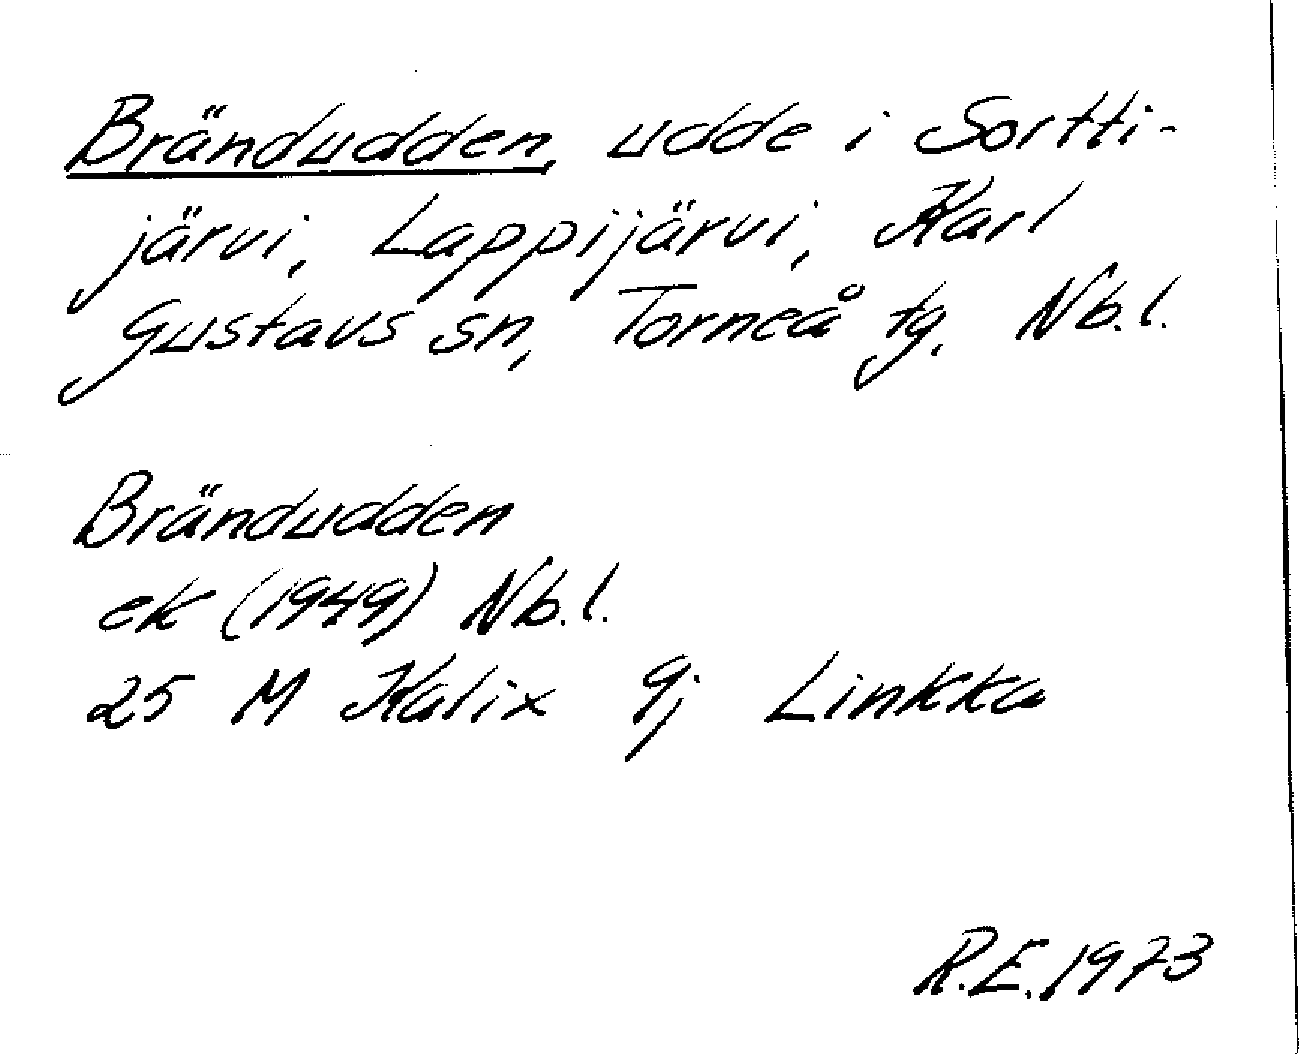 Brändudden, udde i Sortti-
järvi, Lappijärvi, Karl
Gustavs sn, Torneå tg. Nb.l.
Brändudden
ek (1949) Nb.l.
25 M Kalix 9j Linkka
R.E. 1973